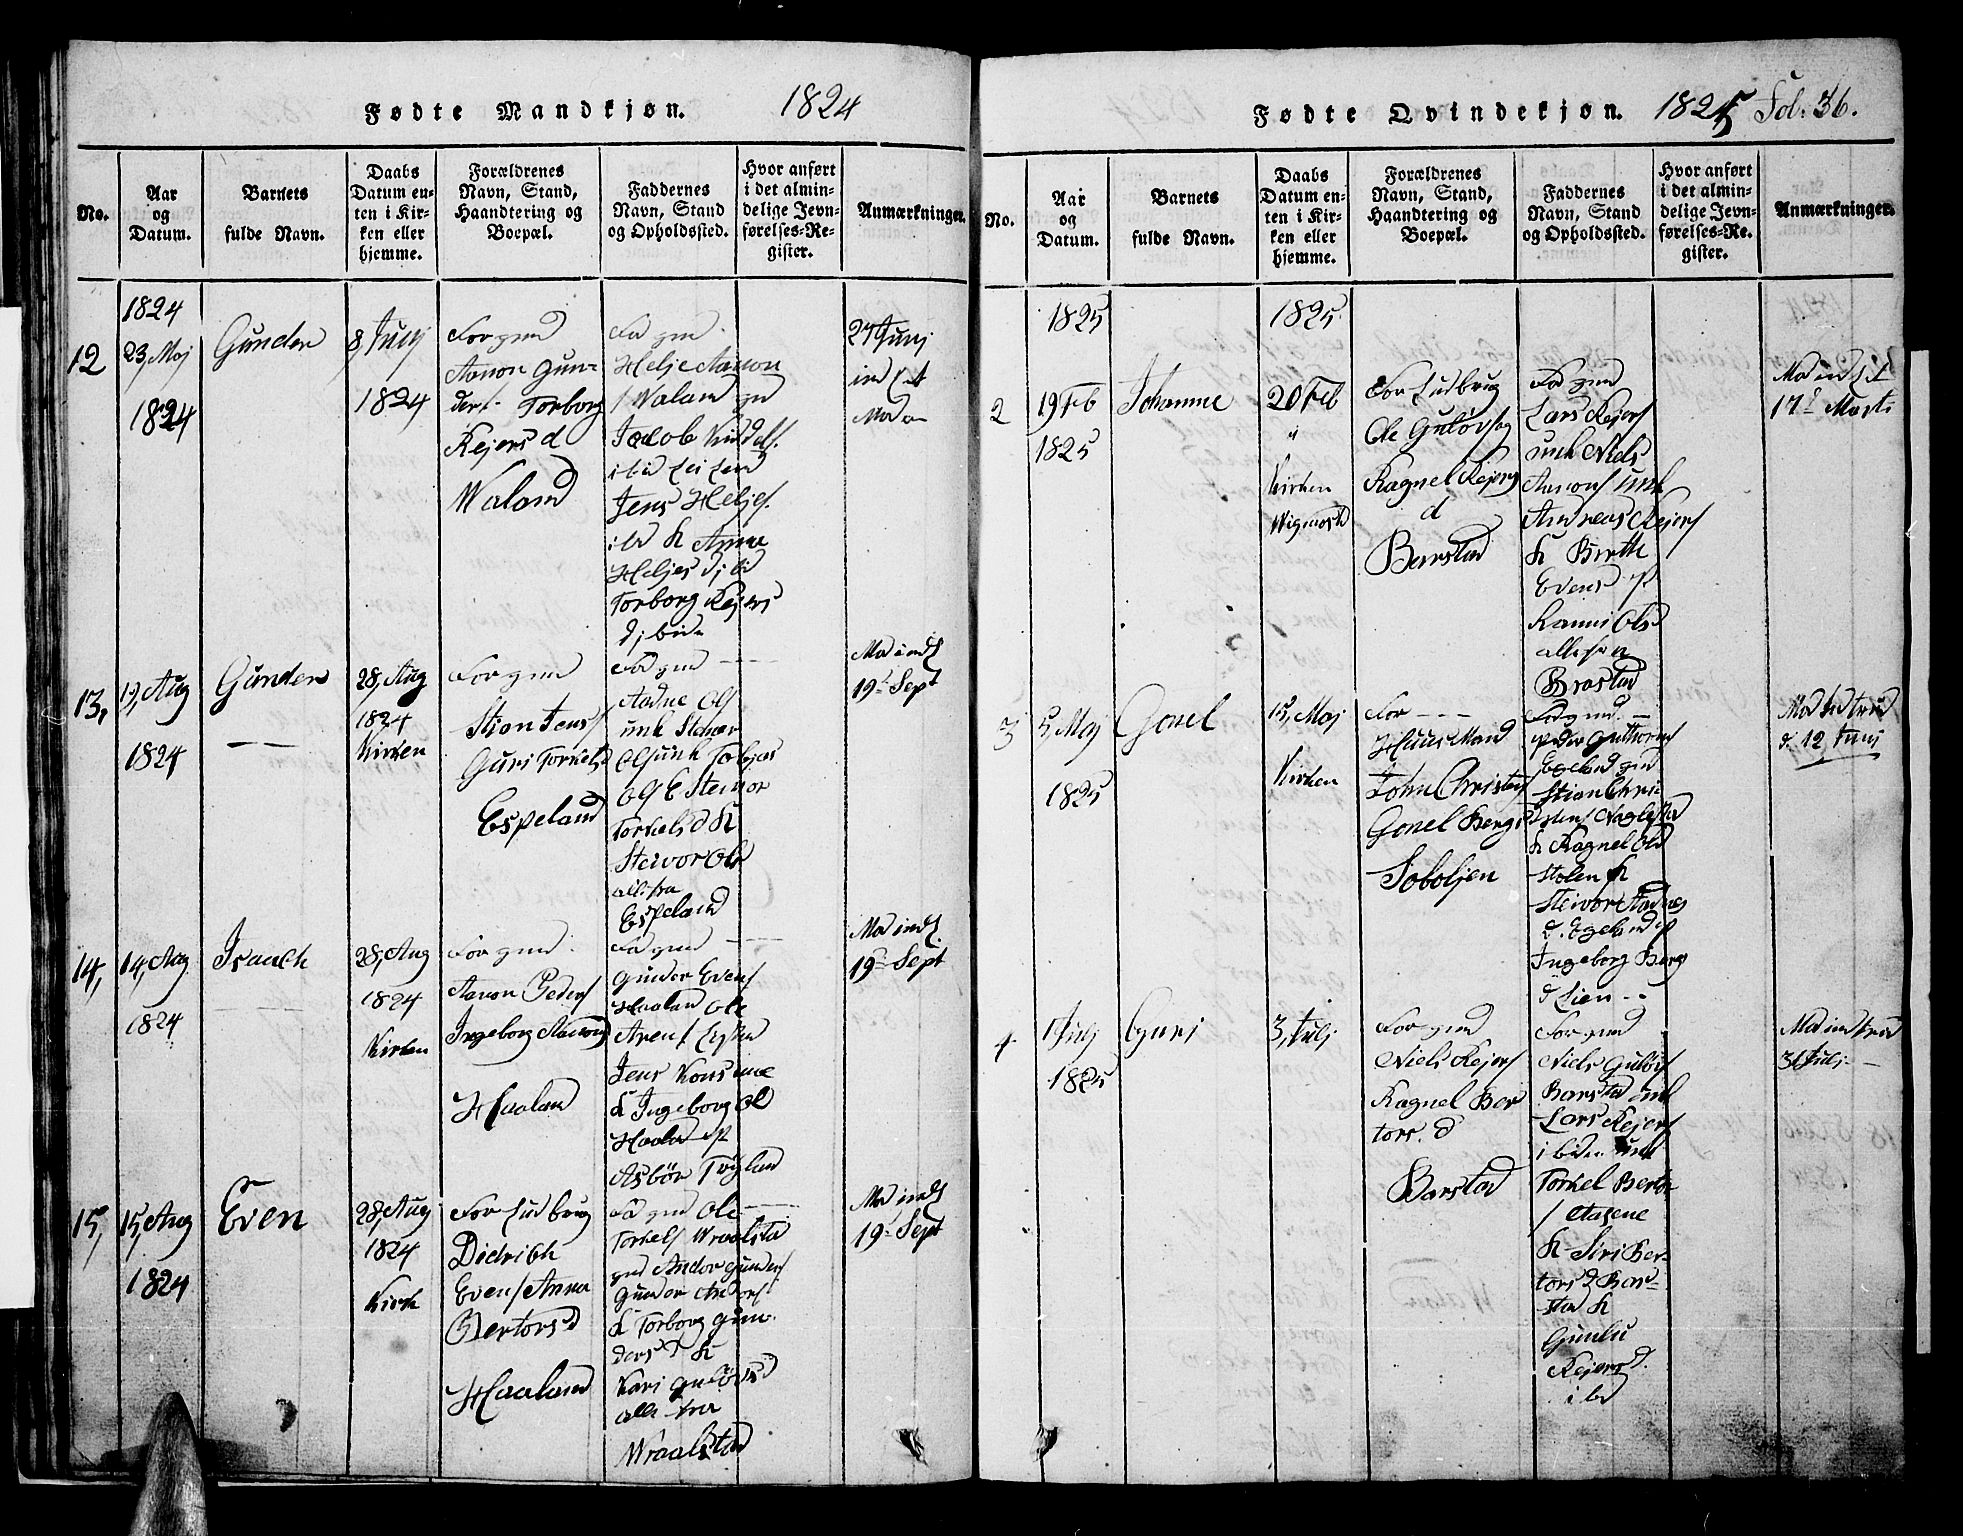 Fødte Mandkjøn. 1824
No.
Aar
og
Datum.
Barnets
fulde Navn.
Daabs
Datum en-
ten i Kir-
ken eller
hjemme.
Forældrenes
Navn, Stand,
Haandtering og
Boepæl.
Faddernes
Navn, Stand
og Opholdssted.
Hvor anført
i det almin-
delige Jevn-
førelses-Re-
gister.
Anmærkninger.
12
1824
23, Maj
1824
Gunder
8, Junj
1824
For gmd
Aanon Gun-
ders. Torborg
Rejersd
Waland
Fa gm
Helje Aanon
s Waland gm
Jacob
Jens Heljes.
ibd K Anne
Heljesd ibd
Torborg Rejers
d, bid
27 Junj
ind
Mod
13,
19, Aug
1824
Gunder
28, Aug
1824
Kirken
For gmd
Stian Jens
Guri Torkelsd
Espeland
Fa gm
Aadne Ols
unk Steiner
Ols unk Tobjas
Ols E Steinor
Torkelsd K
Steivor Ols
alle fra
Espeland
Mod indl
19 Sept
14,
14, Aug
1824
Isaach
28, Aug
1824
Kirken
For gmd.
Aanon Peders
Ingeborg Aanonsd
Haaland
Fa gm
Gunder Evens
Haaland Ole
Arens
Jens
K Ingeborg Ol
Haaland p
Asbör
Mod indl.
19 Sept
15,
15, Aug
1824
Even
28, Aug
1824
Kirk
For Ludbrug
Didrich
Evens Anna
Bertorsd
Haaland
Fa gm Ole
Torkels Wraalsta
gm Andor Gunders
Gunder Andors
K Torborg Gun-
dersd K
Kari Guløvsd
alle fra
Wraalstad
Mod indl
19 Sept
Fødte Qvindekjøn. 1825 Fol: 36.
No.
Aar
og
Datum.
Barnets
fulde Navn.
Daabs
Datum en-
ten i Kir-
ken eller
hjemme.
Forældrenes
Navn, Stand,
Haandtering og
Boepæl.
Faddernes
Navn, Stand
og Opholdssted.
Hvor anført
i det almin-
delige Jevn-
førelses-Re-
gister.
Anmærkninger.
2
1825
19 Feb
1825
Johanne
1825.
20 Feb
i
Kirken
Wigmost
For Ludbrug
Ole Guløvs og
Ragnel Rejers
d
Barstad
Fa gm
Lars Rejers
unk Niels
Aanons unk
Andreas Rejers
K Birthe
Evens p
Ranni Olsd
alle fra
Brastad
Mod ind
17 Marts
3
5, Maj
1825
Gonel
15, Maj
Kirken
For
Huus Mand
John Christens
Gonel Bergs
Soboljen
Fa gm.
Peder Guttorms
Egeland gm
Stian Chri
stens
K Ragnel Ols
Stolen K
Steivor Aadnes
d. Egeland p
Ingeborg Berg
d Lien
Mod Indtræd
d 12 Junj
4
1 Julj
1825
Guri
3, Julj
For gmd
Niels Rejers
Ragnel Ber
tors. d
Barstad
For gmd
Niels Guløvs
Barstad unk
Lars Rejers
i bd unk
Torkel Bertor
s
K Siri Ber-
tors d Bar-
stad K
Gunlu
Rejersd.
i bd
Mod indtræd
31 Julj